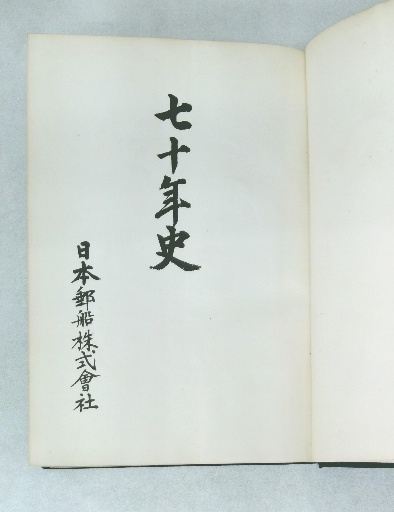 七十年史
日本郵船株式會社